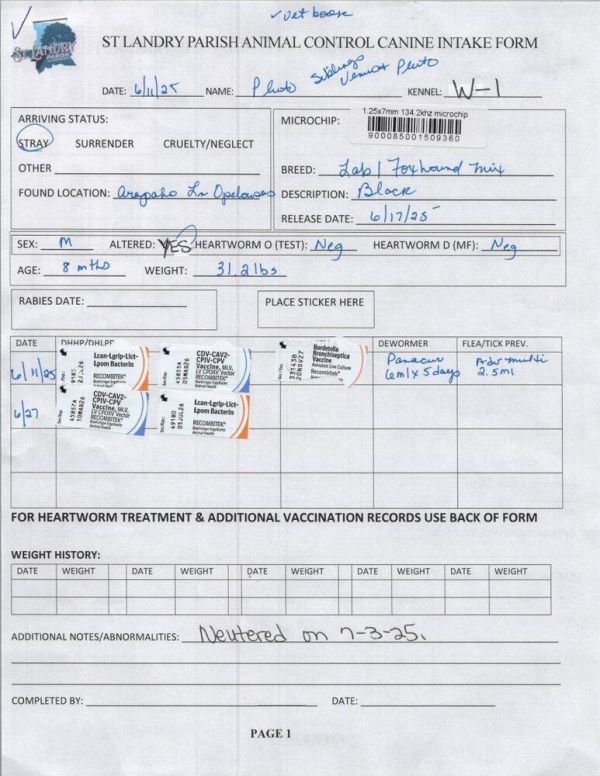 vet boose
ST LANDRY
PARISH
ST LANDRY PARISH ANIMAL CONTROL CANINE INTAKE FORM
Siblings
Venus & Pluto
DATE: 6/11/25 NAME: Pluto KENNEL: W-1
ARRIVING STATUS:
STRAY SURRENDER CRUELTY/NEGLECT
OTHER
FOUND LOCATION: Arapaho Ln Opelousas
MICROCHIP:
1.25x7mm 134.2khz microchip
900085001509360
BREED: Lab / Foxhound mix
DESCRIPTION: Black
RELEASE DATE: 6/17/25
SEX: M ALTERED: YES HEARTWORM O (TEST): Neg HEARTWORM D (MF): Neg
AGE: 8 mths WEIGHT: 31.2 lbs
RABIES DATE:
PLACE STICKER HERE
DATE DHHP/DHLPP DEWORMER FLEA/TICK PREV.
6/11/25
Lcan-Lgrip-Lict-
Lpom Bacterin
RECOMBITEK®
Boehringer Ingelheim
Animal Health
CDV-CAV2-
CPIV-CPV
Vaccine, MLV,
LV CPOXV Vector
RECOMBITEK®
Boehringer Ingelheim
Animal Health
45855A
10MAR26
Bordetella
Bronchiseptica
Vaccine
Avirulent Live Culture
Recombitek®
33143B
20NOV27
Panacur
6ml x 5 days
Adv-multi
2.5ml
6/27
CDV-CAV2-
CPIV-CPV
Vaccine, MLV,
LV CPOXV Vector
RECOMBITEK®
Boehringer Ingelheim
Animal Health
45857A
10MAR26
Lcan-Lgrip-Lict-
Lpom Bacterin
RECOMBITEK®
Boehringer Ingelheim
Animal Health
49180
05JUL26
FOR HEARTWORM TREATMENT & ADDITIONAL VACCINATION RECORDS USE BACK OF FORM
WEIGHT HISTORY:
DATE WEIGHT DATE WEIGHT DATE WEIGHT DATE WEIGHT DATE WEIGHT
ADDITIONAL NOTES/ABNORMALITIES: Neutered on 7-3-25.
COMPLETED BY: DATE:
PAGE 1